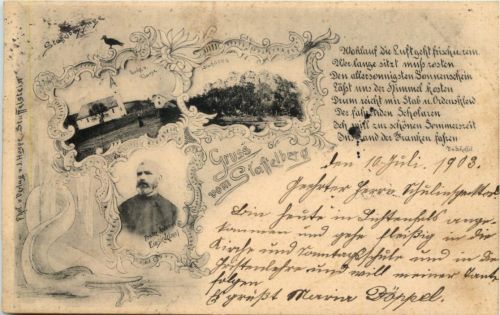 Wohlauf die Luft geht frisch u. rein
Wer lange sitzt muß rosten
Den allersonnigsten Sonnenschein
Läßt uns der Himmel kosten
Drum reicht mir Stab u. Ordenskleid
Der fahrenden Scholaren
Ich will zur schönen Sommerzeit
Ins Land der Franken fahren
Gruss
vom Staffelberg
den 10. Juli. 1903.
Geehrter Herr Schulinspektor
Bin heute in Lichtenfels ange-
kommen und gehe fleißig in die
Kirche und Sonntagsschule und in die
und will meiner Tante
folgen
Es grüßt Maria Döppel.